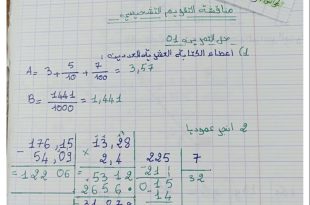 مناقشة التقويم التشخيصي
حل التمرين 01
1) إعطاء الكتابة العشرية للعددين:
A= 3 + 5/10 + 7/100 = 3,57
B= 1441/1000 = 1,441
2 أنجز عموديا
176,15
- 54,09
= 122 06
13,28
× 2,4
5312
2656•
225 7
- 21 32
0 15
- 14